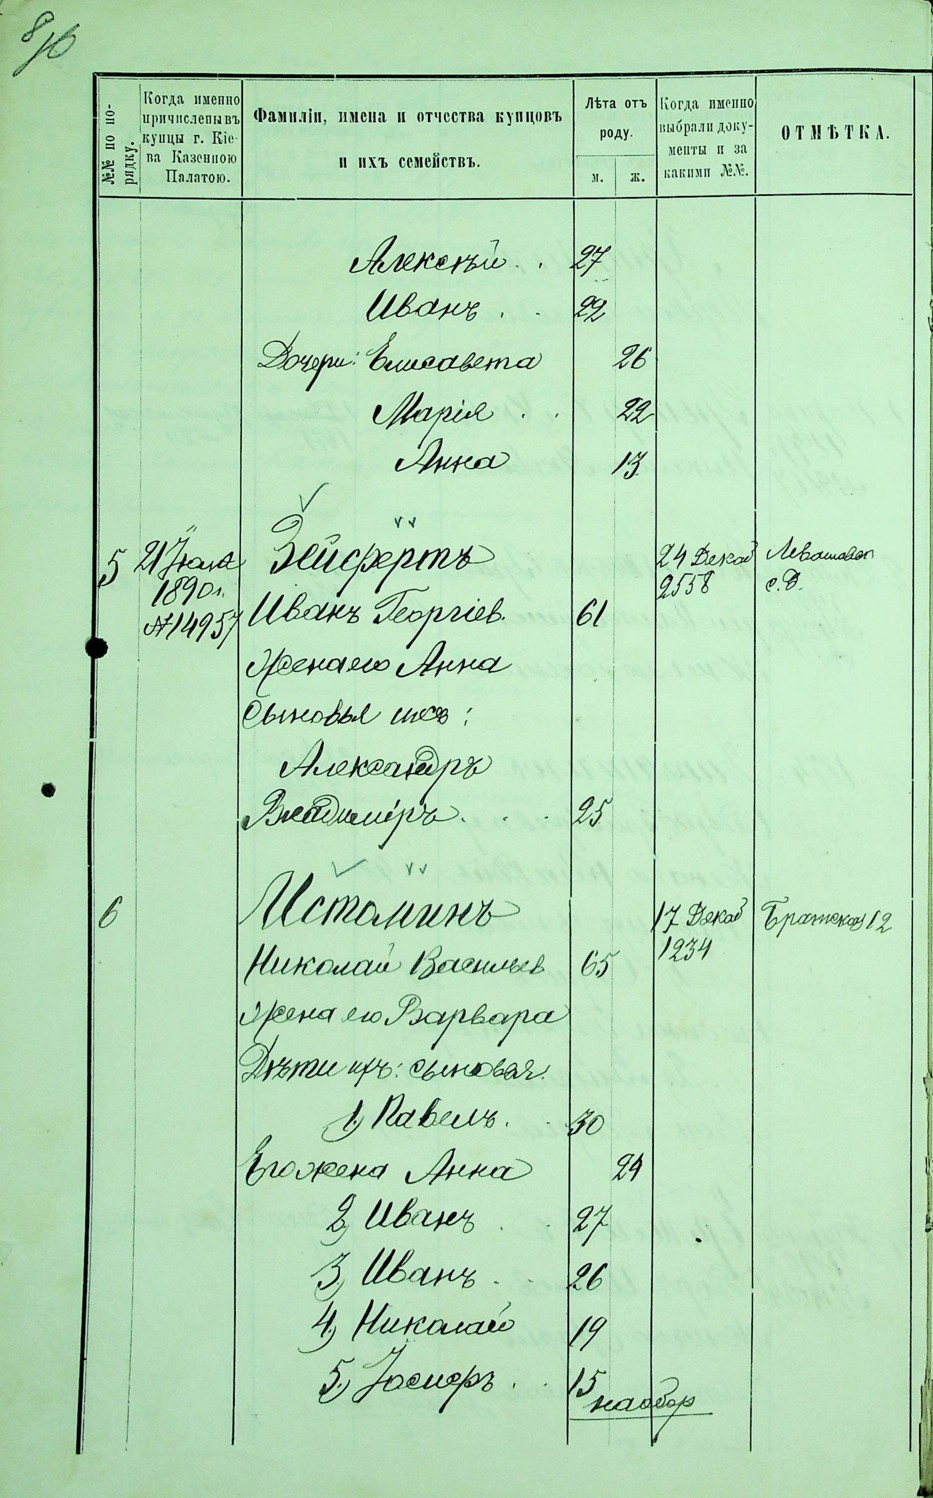 №№ по по-
рядку.
Когда именно
причислены въ
купцы г. Кіе-
ва Казенною
Палатою.
Фамиліи, имена и отчества купцовъ
и ихъ семействъ.
Лѣта отъ
роду.
м. ж.
Когда именно
выбрали доку-
менты и за
какими №№.
ОТМѢТКА.
Алексѣй . . 27
Иванъ . . 22
Дочери: Елисавета 26
Марія . . 22
Анна 13
5 21 Іюля Зейфертъ 24 Декаб
1890 г. 2558 с. д.
№ 14957 Иванъ Георгіев. 61
Жена его Анна
Сыновья ихъ:
Александръ
Владиміръ . . . 25
6 Истоминъ 17 Декаб Братская 12
Николай Васильев 65 1234
Жена его Варвара
Дѣти ихъ: сыновья:
1) Павелъ . . 30
Его жена Анна 24
2) Иванъ . . 27
3) Иванъ . . 26
4) Николай 19
5) Іосифъ . . 15
на обор